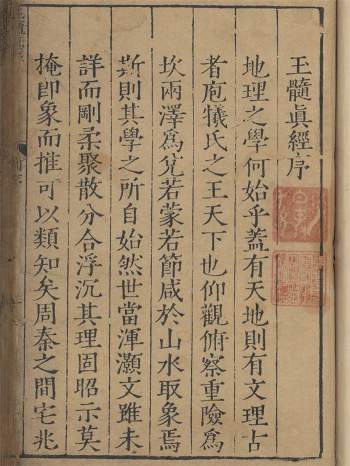 玉髓真經序
地理之學何始乎蓋有天地則有文理古
者庖犧氏之王天下也仰觀俯察重險爲
坎兩澤爲兌若蒙若節咸於山水取象焉
斯則其學之所自始然世當渾灝文雖未
詳而剛柔聚散分合浮沉其理固昭示莫
掩卽象而推可以類知矣周秦之間宅兆